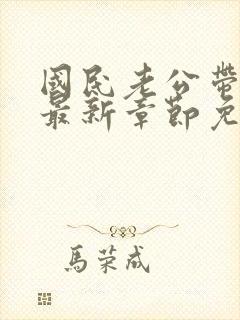 國民老公帶
最新章節免
馬荣成